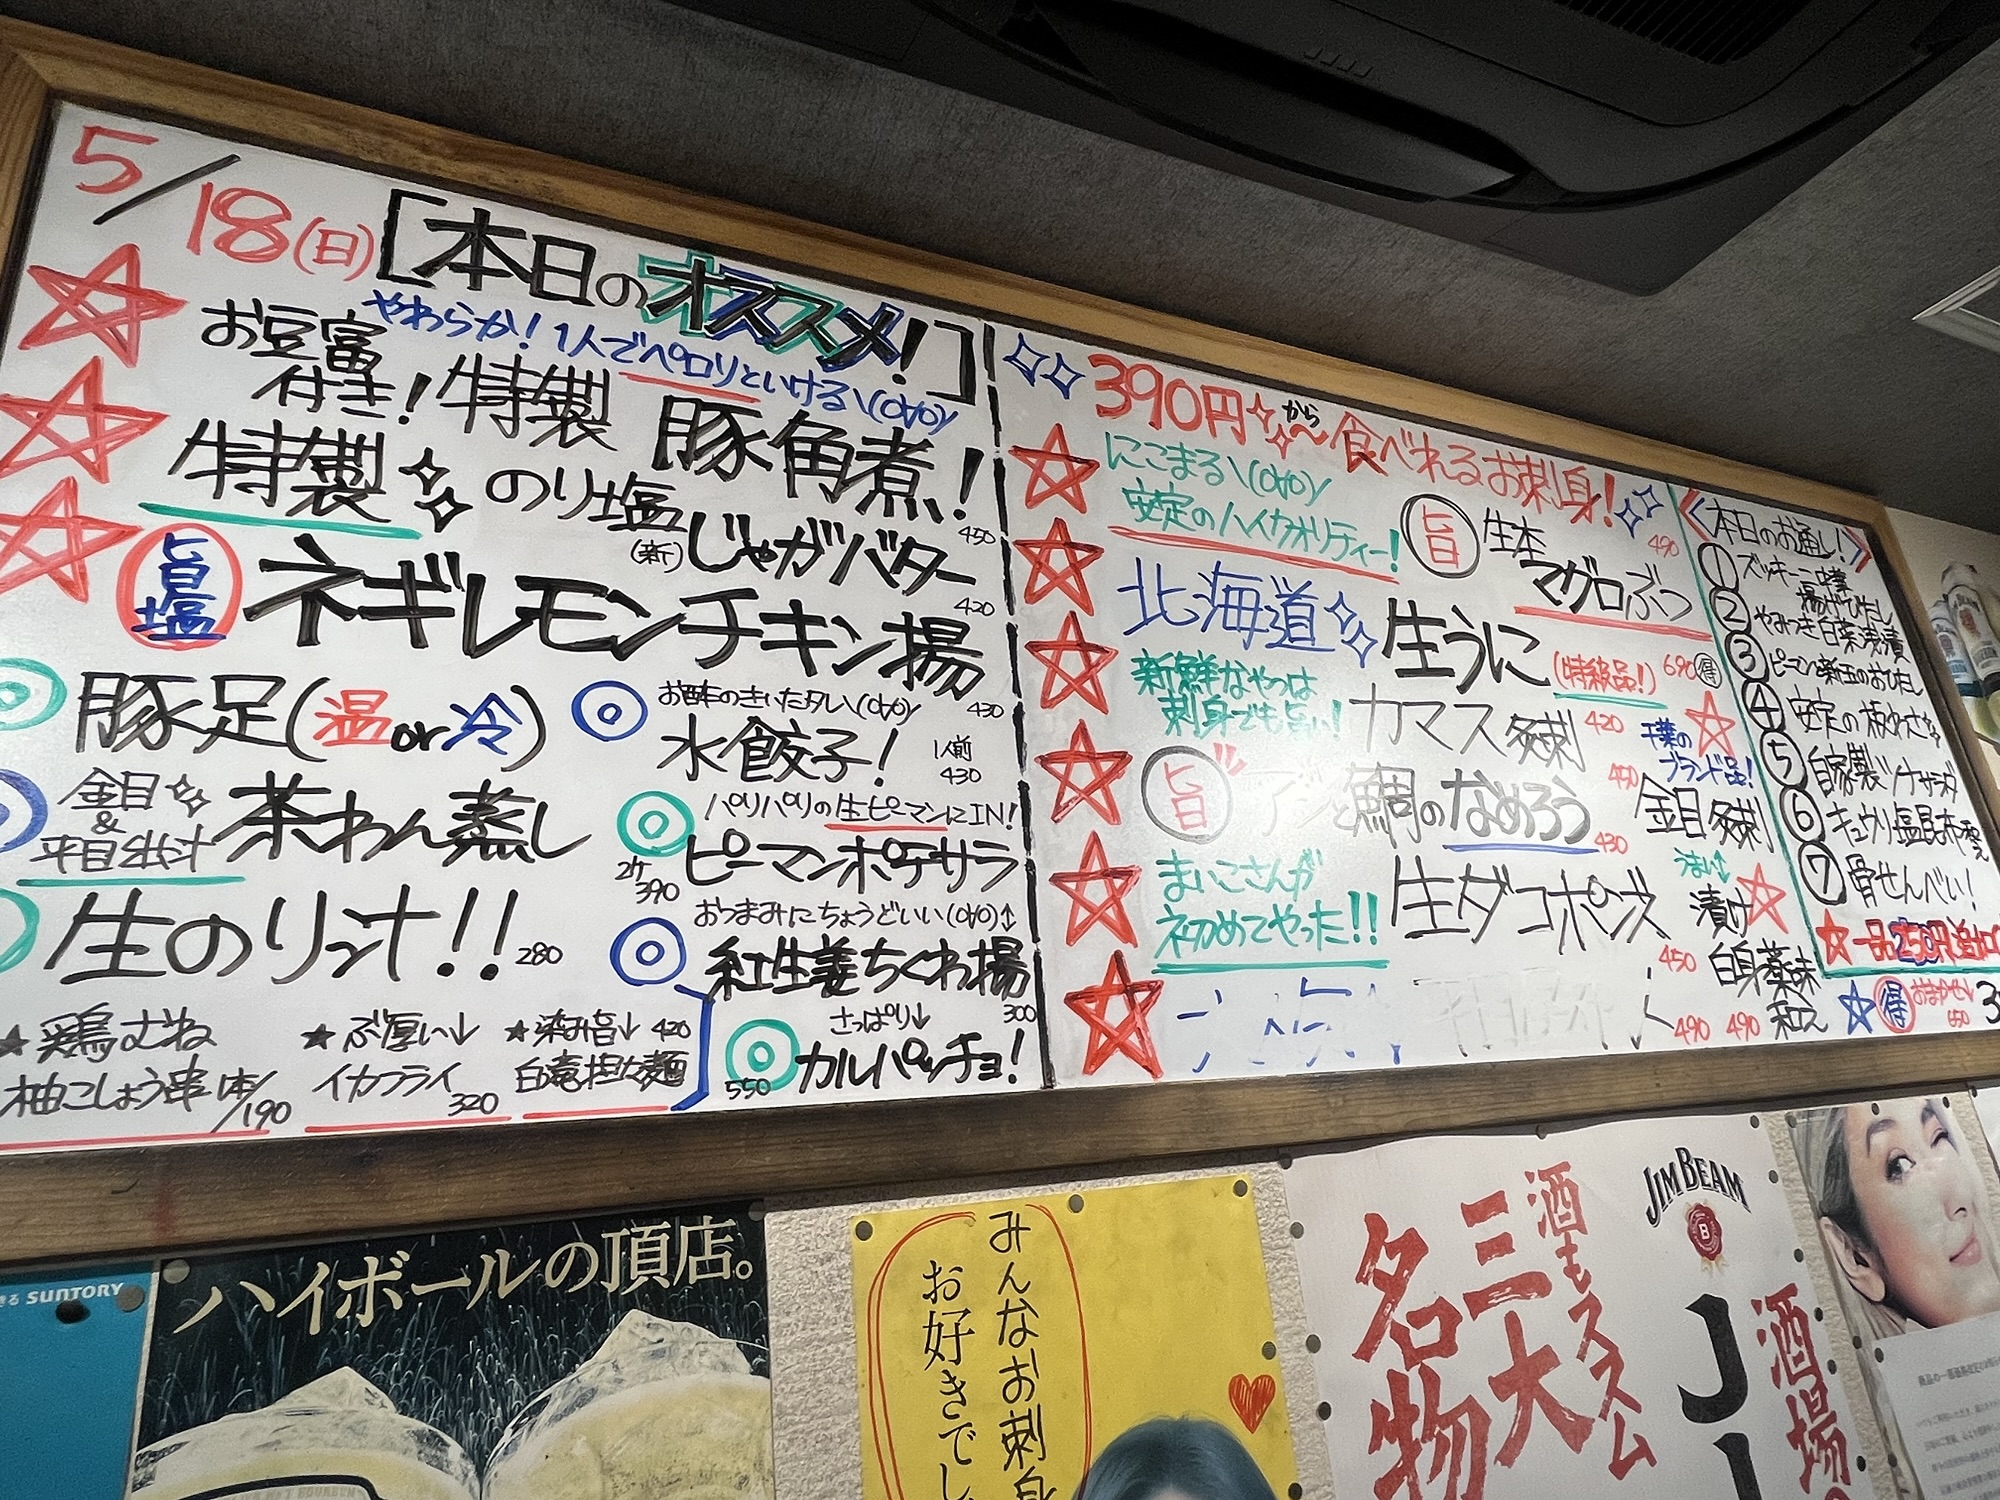 5/18(日) [本日のオススメ!]
やわらか!1人でペロリといける\(^o^)/
お豆富付き!特製 豚角煮! 450
特製 のり塩(新)じゃがバター 420
旨塩 ネギレモンチキン揚 430
豚足(温or冷)
水餃子! 1人前 430
金目&平目出汁 茶わん蒸し
パリパリの生ピーマンにIN!
ピーマンポテサラ 2ケ 390
生のリンゴ!! 280
おつまみにちょうどいい(^o^)↑
紅生姜ちくわ揚 300
★鶏むね
柚こしょう串 1本/190
★ぶ厚い↓
イカフライ 320
420
白湯担々麺
さっぱり↓
カルパッチョ! 550
390円から〜食べれるお刺身!
にこまる\(^o^)/
安定のハイクオリティー!
旨 生本マグロぶつ 490
北海道 生うに(特級品!) 690 得
新鮮なやつは
刺身でも旨い!
カマス炙刺 420
旨 アジと鯛のなめろう 430
まいこさんが
初めてやった!!
生ダコポンズ 450
千葉の
ブランド品!
金目炙刺 490
うまい↓
漬け 490
白身薬味
和え 490
得 おまかせ↓ 650
《本日のお通し!》
①ズッキーニ
揚げびたし
②やみつき白菜浅漬
③ピーマン新玉のおひたし
④安定の板わさ
⑤自家製ツナサラダ
⑥キュウリ塩昆布
⑦骨せんべい!
★一品250円
SUNTORY
ハイボールの頂店。
みんなお刺身
お好きでし
酒もススム
三大
名物
JIM BEAM
B
酒場